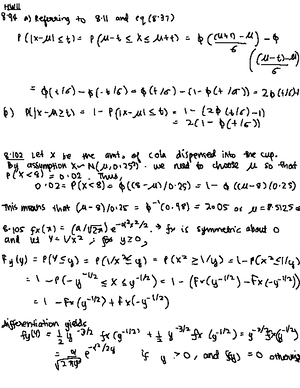 8.94 a) Referring to 8.11 and eq (8.37)
P(|x-μ| ≤ t) = P(μ-t ≤ X ≤ μ+t) = Φ((μ+t)-μ / σ) - Φ
((μ-t)-μ / σ)
= Φ(t/σ) - Φ(-t/σ) = Φ(t/σ) - (1-Φ(t/σ)) = 2Φ(t/σ)-1
b) P(|x-μ| ≥ t) = 1 - P(|x-μ| ≤ t) = 1 - (2Φ(t/σ)-1)
= 2(1-Φ(t/σ))
8.102 Let X be the amt. of cola dispensed into the cup.
By assumption X~N(μ, 0.25²). We need to choose μ so that
P(X<8) = 0.02. Thus,
0.02 = P(X<8) = Φ((8-μ)/0.25) = 1 - Φ((μ-8)/0.25)
This means that (μ-8)/0.25 = Φ⁻¹(0.98) = 2.05 or μ = 8.5125
8.105 fx(x) = (a/√2π) e^-a²x²/2, → fx is symmetric about 0
and let Y = 1/x²; for y>0,
Fy(y) = P(Y≤y) = P(1/x² ≤ y) = P(x² ≥ 1/y) = 1-P(x² ≤ 1/y)
= 1 - P(-y^-1/2 ≤ X ≤ y^-1/2) = 1 - (Fx(y^-1/2) - Fx(-y^-1/2))
= 1 - Fx(y^-1/2) + Fx(-y^-1/2)
Differentiation yields
fy(y) = 1/2 y^-3/2 fx(y^-1/2) + 1/2 y^-3/2 fx(y^-1/2) = y^-3/2 fx(y^-1/2)
= a/√2πy³ e^-a²/2y if y > 0, and f(y) = 0 otherwise